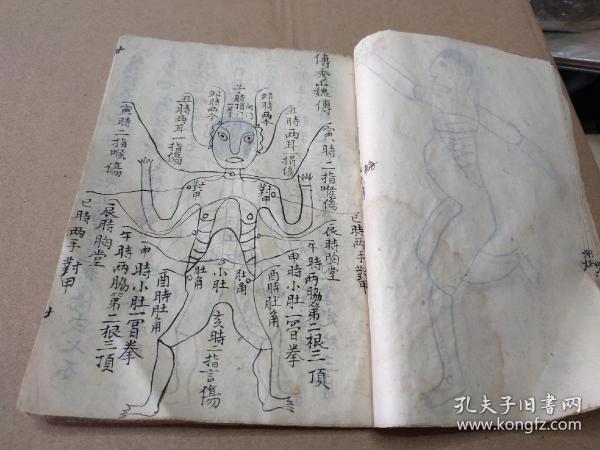 傳
寅時二指喉傷
丑時兩耳一指傷
子時頂門
卯時兩
丑時兩耳一指傷
寅時二指喉傷
對甲
對甲
巳時两手對甲
辰時胸堂
午時两脇第二根三頂
申時小肚一冒拳
酉時肚角
肚角
小肚
亥時一指言傷
小肚
肚角
酉時肚角
申時小肚一冒拳
午時两脇第二根三頂
辰時胸堂
巳時两手對甲
孔夫子旧书网
www.kongfz.com